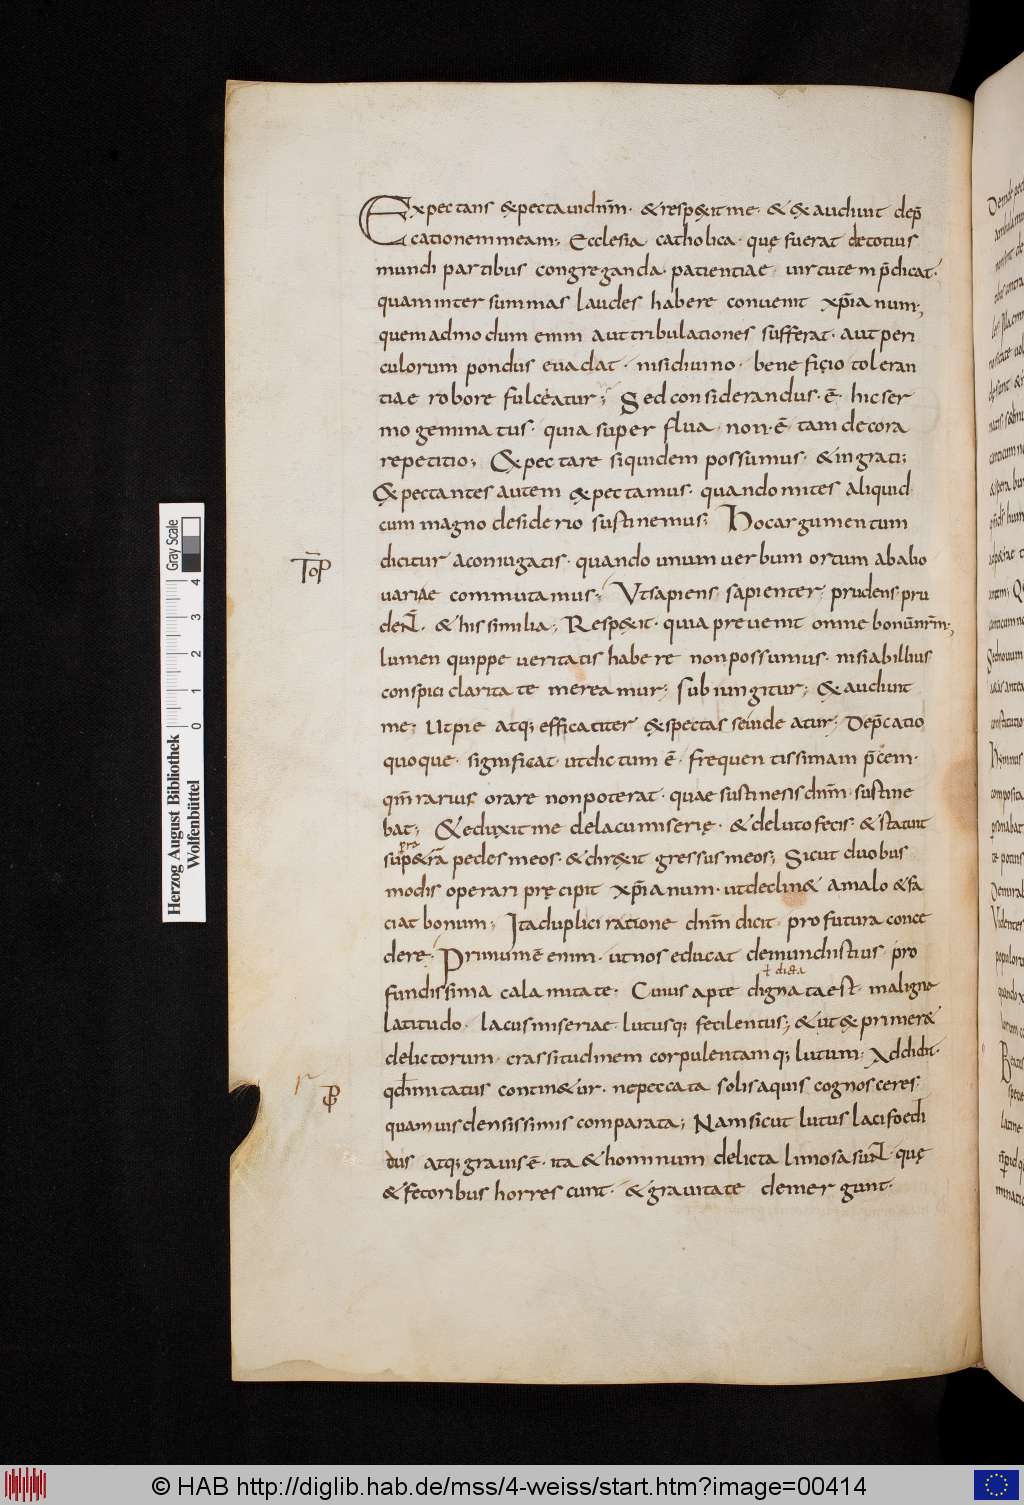 Expectans expectaui dnm̅. & respexit me. & exaudiuit dep̅
cationem meam; Ecclesia catholica. quę fuerat de totius
mundi partibus congreganda. patientiae uirtutem p̅dicat.
quam inter summas laudes habere conuenit xp̅ianum;
quemadmodum enim aut tribulationes sufferat. aut peri
culorum pondus euadat. nisi diuino. beneficio toleran
tiae robore fulceatur; Sed considerandus. ē. hic ser
mo geminatus. quia superflua. non. ē. tam decora
repetitio; Expectare siquidem possumus. & ingrati;
Expectantes autem expectamus. quando mites aliquid
cum magno desiderio sustinemus; Hoc argumentum
Top̅
dicitur a coniugatis. quando unum uerbum ortum ab alio
uariae commutamus; Ut sapiens sapienter prudens pru
dent̅. & his similia; Respexit. quia preuenit omne bonū nrm̅;
lumen quippe ueritatis habere non possumus. nisi ab illius
conspici claritate mereamur; subiungitur; Exaudiuit
me; Ut pie atq; efficaciter exspectasse uideatur; Dep̅catio
quoque. significat. ut dictum ē. frequentissimam p̅cem.
qm̅ rarius orare non poterat. quae sustinens dnm̅ sustine
bat; Et eduxit me de lacu miserię. & de luto fecis. & statuit
pra
sup & rā pedes meos. & direxit gressus meos; Sicut duobus
modis operari pręcipit xp̅ianum. ut declin& a malo & fa
ciat bonum; Ita duplici ratione dnm̅ dicit profutura conce
dere; Primum ē enim. ut nos educat de mundi istius pro
ł dicta
fundissima calamitate. Cuius apte digna ta est. maligna
latitudo. lacus miseriae. lutusq; feculentus; & ut exprimer&
delictorum. crassitudinem corpulentamq; lutum; Addidit.
qd̅ imitatus contin&ur. ne peccata solis aquis cognosceres
quamuis densissimis comparata; Nam sicut lutus laci foeti
dus atq; grauis ē. ita & hominum delicta limosa sunt. quę
& fetoribus horrescunt. & grauitate demergunt.
Herzog August Bibliothek
Wolfenbüttel
0 1 2 3 4
Gray Scale
© HAB http://diglib.hab.de/mss/4-weiss/start.htm?image=00414